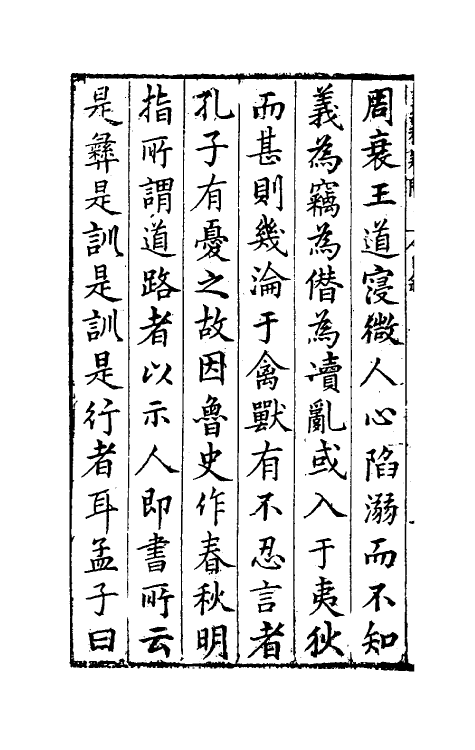 周衰王道寖微人心陷溺而不知
義為竊為僭為凟亂或入于夷狄
而甚則幾淪于禽獸有不忍言者
孔子有憂之故因魯史作春秋明
指所謂道路者以示人即書所云
是彝是訓是訓是行者耳孟子曰